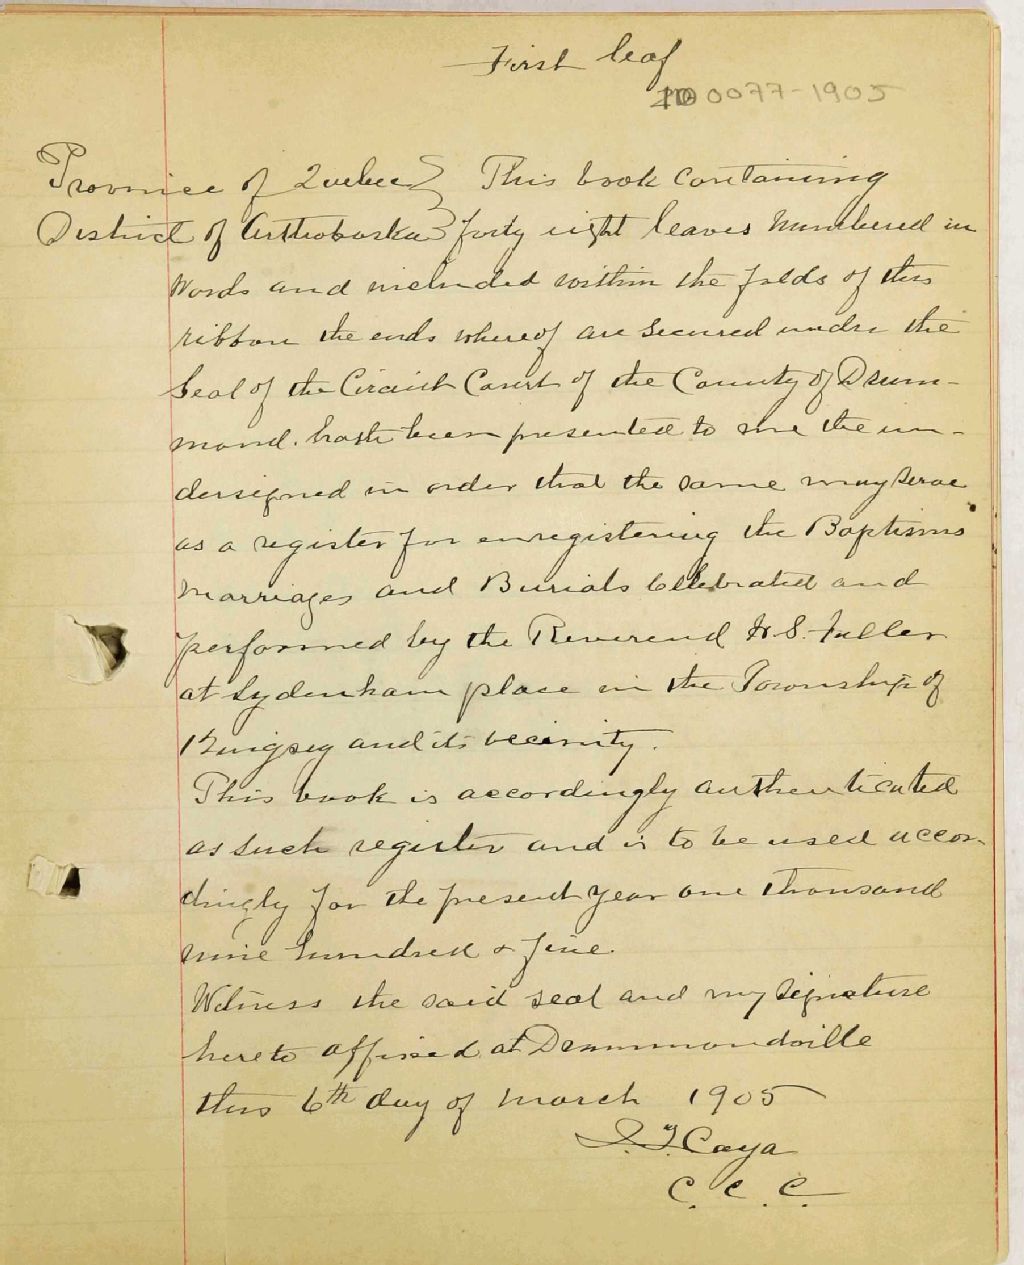 First leaf
0077-1905
Province of Quebec } This book containing
District of Arthabaska } forty eight leaves numbered in
words and included within the folds of this
ribbon the ends whereof are secured under the
Seal of the Circuit Court of the County of Drum-
mond. hath been presented to me the un-
dersigned in order that the same may serve
as a register for enregistering the Baptisms
Marriages and Burials Celebrated and
performed by the Reverend H. S. Fuller
at Sydenham place in the Township of
Kingsey and its vecinity.
This book is accordingly authenticated
as such register and is to be used accor-
dingly for the present year one thousand
nine hundred & five.
Witness the said seal and my signature
hereto affixed at Drummondville
this 6th day of March 1905
Caya
C. C. C.